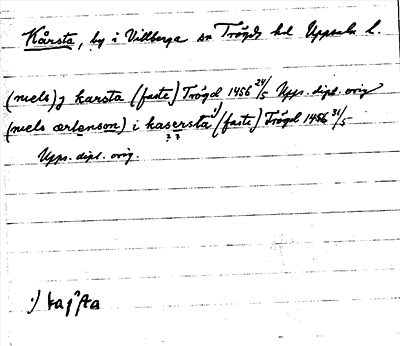 Kårsta, by i Villberga sn Trögds hd Uppsala l.
(niels) j karsta (faste) Trögd 1456 24/5 Upps. dipl. orig
(niels ærlenson) i kasersta 1) (faste) Trögd 1456 31/5
Upps. dipl. orig.
1)